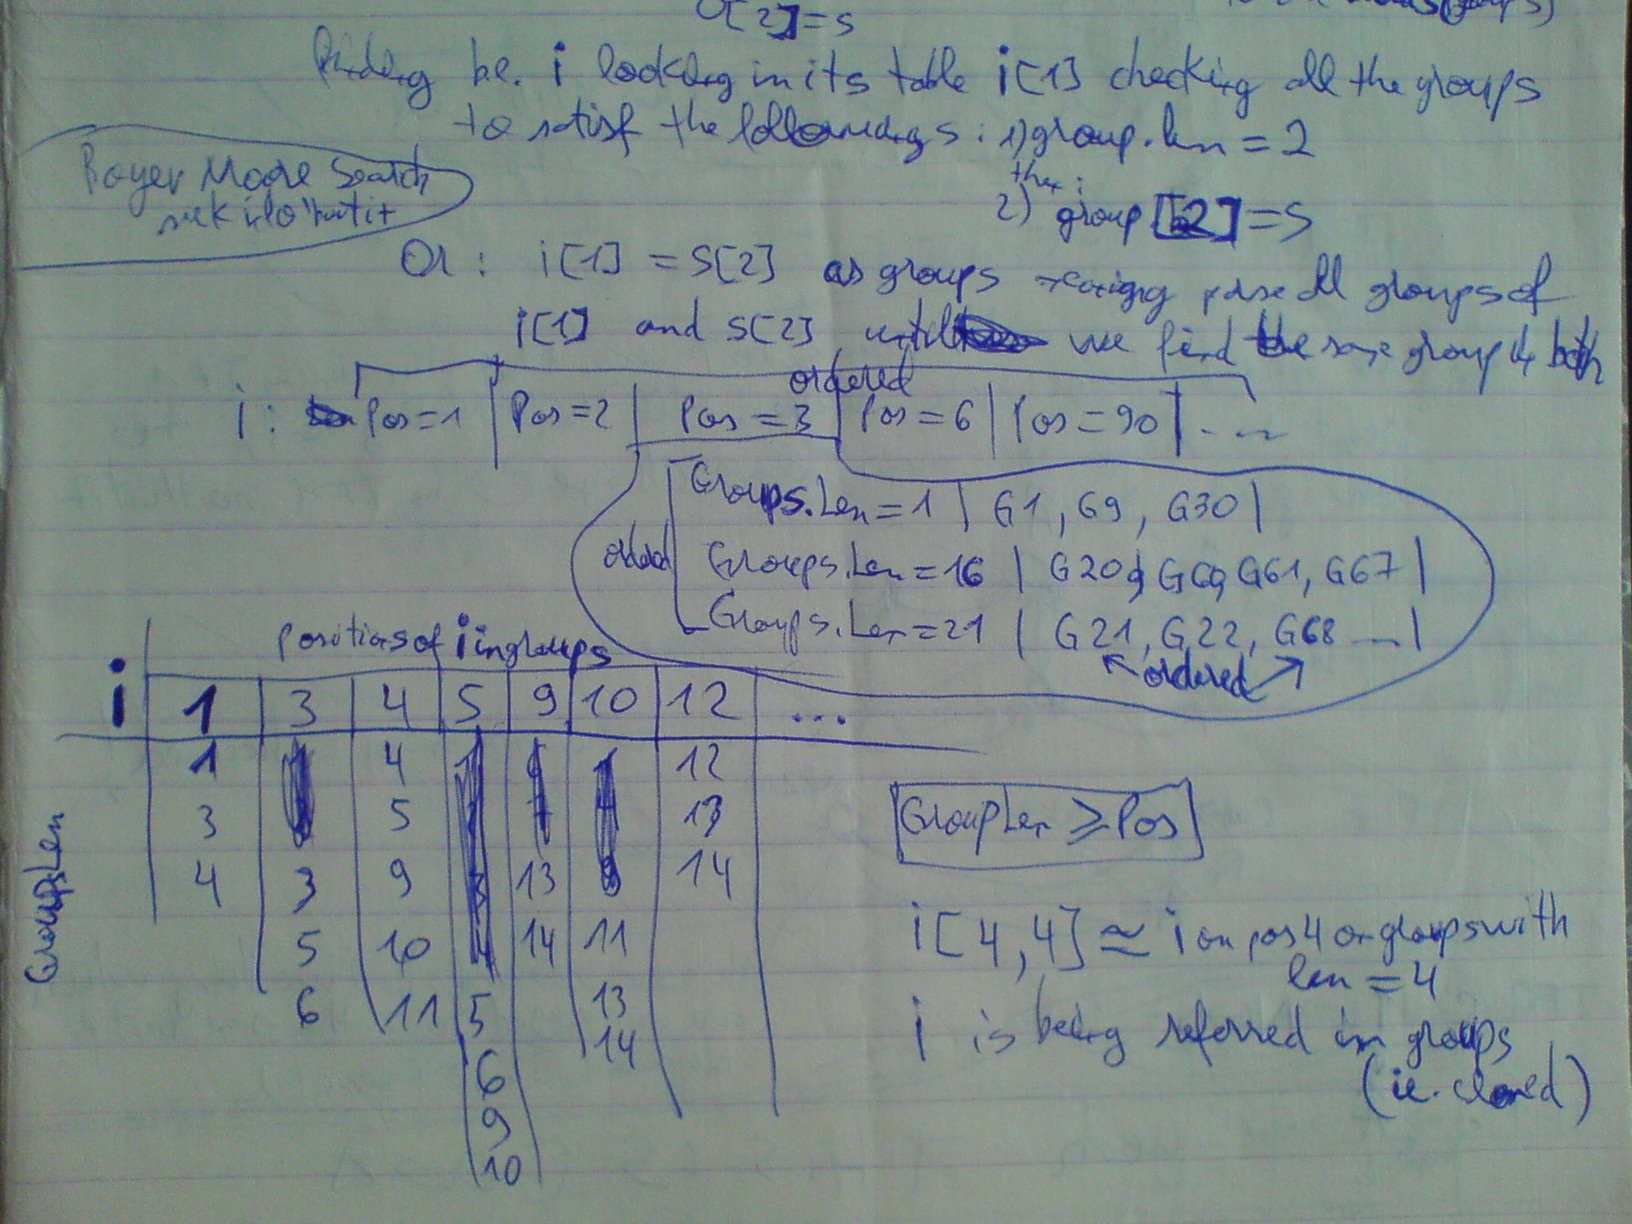 O[2]=s
finding be. i looking in its table i[1] checking all the groups
to satisf the followings: 1) group.len = 2
then:
2) group [2]=S
Boyer Moore Search
Or: i[1] = S[2] as groups parse all groups of
i[1] and S[2] until we find the same group in both
ordered
i: Pos=1 | Pos=2 | Pos=3 | Pos=6 | Pos=90 | ...
Groups.Len=1 | G1, G9, G30 |
ordered Groups.Len=16 | G20, G60, G61, G67 |
Groups.Len=21 | G21, G22, G68 ... |
ordered
Positions of i in groups
i 1 3 4 5 9 10 12 ...
GroupsLen
1 4 12
3 5 13
4 3 9 13 14
5 10 14 11
6 11 5 13
14
6
9
10
GroupLen ≥ Pos
i[4,4] ≃ i on pos 4 on groups with
len = 4
i is being referred in groups
(ie. cloned)